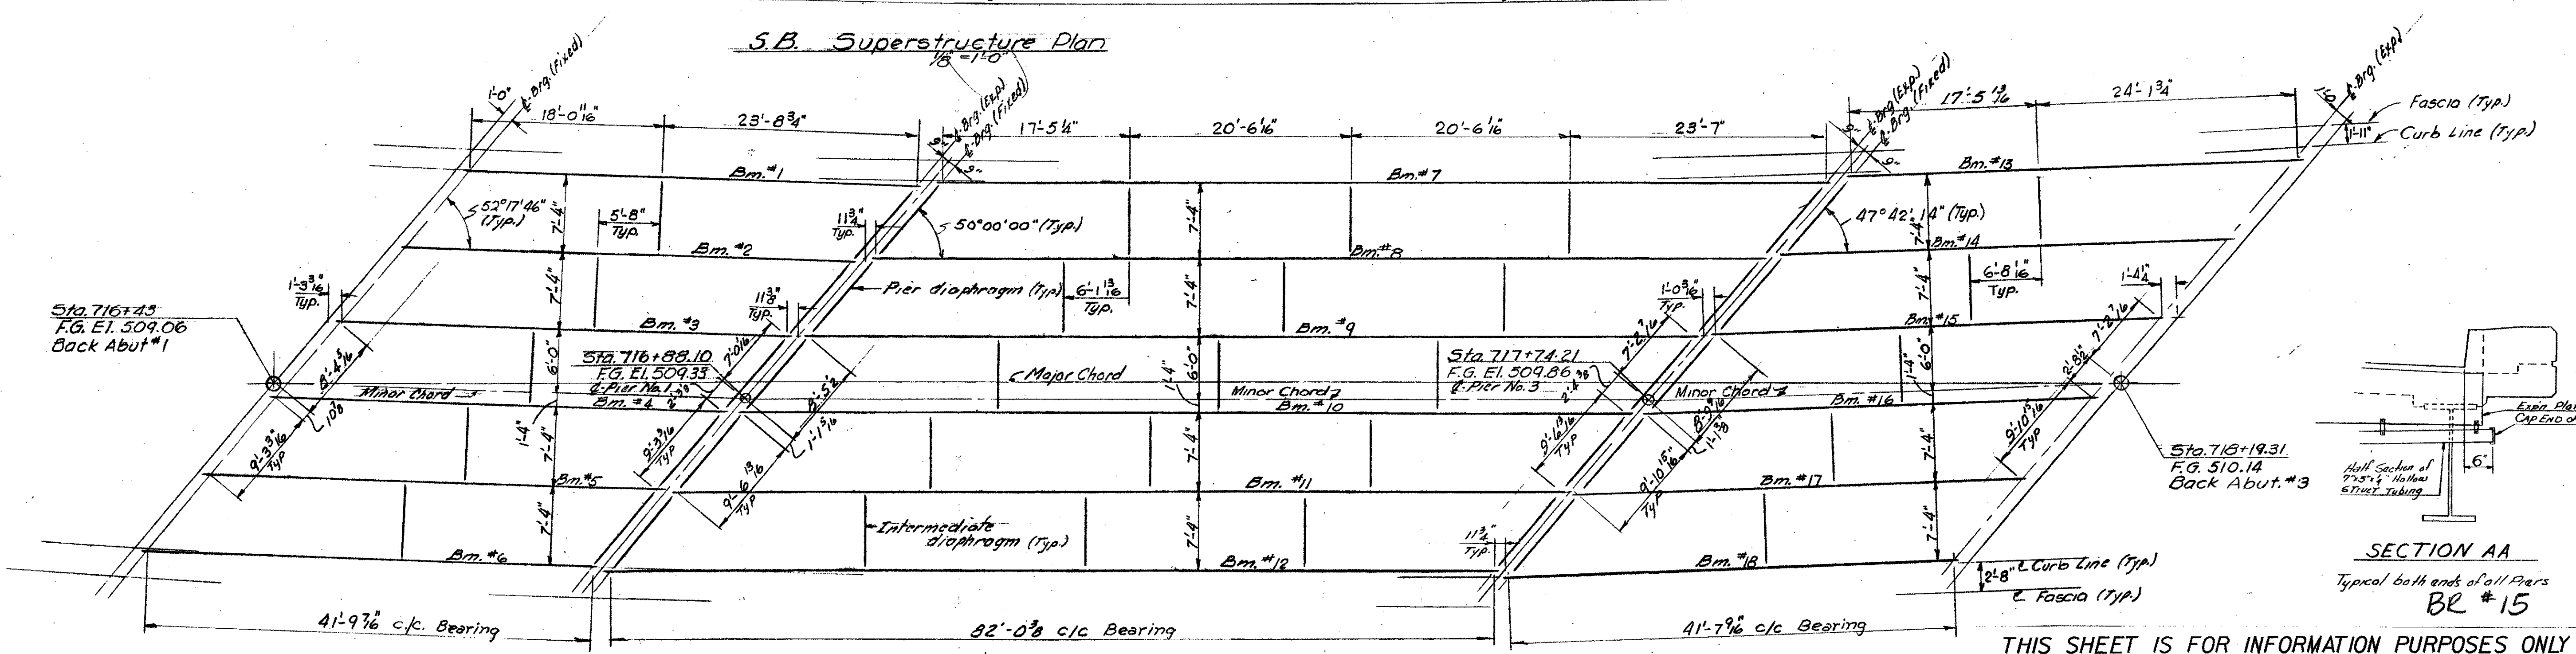 S.B. Superstructure Plan
1/8" = 1'-0"
1'-0"
℄ Brg. (Fixed)
18'-0 1/16"
23'-8 3/4"
9"
℄ Brg. (Exp)
℄ Brg. (Fixed)
9"
17'-5 1/4"
20'-6 1/16"
20'-6 1/16"
23'-7"
9"
℄ Brg (Exp)
℄ Brg. (Fixed)
9"
17'-5 13/16"
24'-1 3/4"
1'-0"
℄ Brg. (Exp)
Fascia (Typ.)
1'-11"
Curb Line (Typ.)
Bm. #1
Bm. #7
Bm. #13
52°17'46"
(Typ.)
5'-8"
Typ.
7'-4"
11 3/4"
Typ.
50°00'00" (Typ.)
7'-4"
47°42'14" (Typ.)
7'-4"
Bm. #2
Bm. #8
Bm. #14
1'-3 3/16"
Typ.
7'-4"
11 3/8"
Typ.
Pier diaphragm (Typ.)
6'-1 13/16"
Typ.
7'-4"
1'-0 3/16"
Typ.
7'-4"
6'-8 1/16"
Typ.
1'-4 1/4"
Bm. #3
Bm. #9
Bm. #15
Sta. 716+45
F.G. El. 509.06
Back Abut #1
8'-4 5/16"
10 7/8"
6'-0"
Sta. 716+88.10
F.G. El. 509.33
℄ Pier No. 1
7'-0 1/16"
2'-3 1/8"
8'-5 1/2"
1'-1 5/16"
Major Chord
1'-4"
6'-0"
Sta. 717+74.21
F.G. El. 509.86
℄ Pier No. 3
7'-2 7/16"
2'-4 3/8"
1'-1 3/8"
1'-4"
6'-0"
7'-2 7/16"
2'-8 1/2"
Minor Chord
Minor Chord
Minor Chord
Bm. #4
Bm. #10
Bm. #16
9'-3 3/16"
Typ
1'-4"
7'-4"
9'-3 3/16"
Typ
9'-6 13/16"
Typ
7'-4"
9'-6 13/16"
Typ
9'-10 15/16"
Typ
7'-4"
9'-10 15/16"
Typ
Sta. 718+19.31
F.G. 510.14
Back Abut. #3
Bm. #5
Bm. #11
Bm. #17
7'-4"
Intermediate
diaphragm (Typ.)
7'-4"
11 3/4"
Typ.
7'-4"
Bm. #6
Bm. #12
Bm. #18
2'-8"
Curb Line (Typ.)
Fascia (Typ.)
41'-9 7/16" c/c. Bearing
82'-0 3/8 c/c Bearing
41'-7 9/16" c/c Bearing
Expn. Pla
CAP END O
6"
Half Section of
7"x5"x1/4" Hollow
Struct Tubing
SECTION AA
Typical both ends of all Piers
BR #15
THIS SHEET IS FOR INFORMATION PURPOSES ONLY